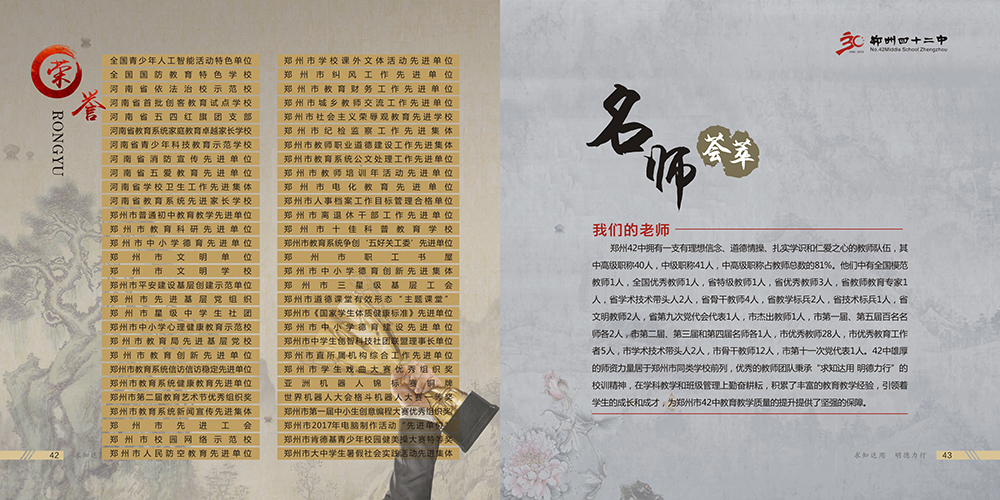 荣誉
RONGYU
全国青少年人工智能活动特色单位
全国国防教育特色学校
河南省依法治校示范校
河南省首批创客教育试点学校
河南省五四红旗团支部
河南省教育系统家庭教育卓越家长学校
河南省青少年科技教育示范学校
河南省消防宣传先进单位
河南省五爱教育先进单位
河南省学校卫生工作先进集体
河南省教育系统先进家长学校
郑州市普通初中教育教学先进单位
郑州市教育科研先进单位
郑州市中小学德育先进单位
郑州市文明单位
郑州市文明学校
郑州市平安建设基层创建示范单位
郑州市先进基层党组织
郑州市星级中学生社团
郑州市中小学心理健康教育示范校
郑州市教育局先进基层党校
郑州市教育创新先进单位
郑州市教育系统信访信访稳定先进单位
郑州市教育系统健康教育先进单位
郑州市第二届教育艺术节优秀组织奖
郑州市教育系统新闻宣传先进集体
郑州市先进工会
郑州市校园网络示范校
郑州市人民防空教育先进单位
郑州市学校课外文体活动先进单位
郑州市纠风工作先进单位
郑州市教育财务工作先进单位
郑州市城乡教师交流工作先进单位
郑州市社会主义荣辱观教育先进学校
郑州市纪检监察工作先进集体
郑州市教师职业道德建设工作先进集体
郑州市教育系统公文处理工作先进单位
郑州市教师培训年活动先进单位
郑州市电化教育先进单位
郑州市人事档案工作目标管理合格单位
郑州市离退休干部工作先进单位
郑州市十佳科普教育学校
郑州市教育系统争创“五好关工委”先进单位
郑州市职工书屋
郑州市中小学德育创新先进集体
郑州市三星级基层工会
郑州市道德课堂有效形态“主题课堂”
郑州市《国家学生体质健康标准》先进单位
郑州市中小学德育建设先进单位
郑州市中学生创智科技社团联盟理事长单位
郑州市直所属机构综合工作先进单位
郑州市学生戏曲大赛优秀组织奖
亚洲机器人锦标赛铜牌
世界机器人大会格斗机器人大赛一等奖
郑州市第一届中小生创意编程大赛优秀组织奖
郑州市2017年电脑制作活动“先进单位”
郑州市肯德基青少年校园健美操大赛特等奖
郑州市大中学生暑假社会实践活动先进集体
42
求知达用
郑州四十二中
No.42Middle School Zhengzhou
名师荟萃
我们的老师
郑州42中拥有一支有理想信念、道德情操、扎实学识和仁爱之心的教师队伍，其
中高级职称40人，中级职称41人，中高级职称占教师总数的81%。他们中有全国模范
教师1人，全国优秀教师1人，省特级教师1人，省优秀教师3人，省教师教育专家1
人，省学术技术带头人2人，省骨干教师4人，省教学标兵2人，省技术标兵1人，省
文明教师2人，省第九次党代会代表1人，市杰出教师1人，市第一届、第五届百名名
师各2人，市第二届、第三届和第四届名师各1人，市优秀教师28人，市优秀教育工作
者5人，市学术技术带头人2人，市骨干教师12人，市第十一次党代表1人。42中雄厚
的师资力量居于郑州市同类学校前列，优秀的教师团队秉承“求知达用 明德力行”的
校训精神，在学科教学和班级管理上勤奋耕耘，积累了丰富的教育教学经验，引领着
学生的成长和成才，为郑州市42中教育教学质量的提升提供了坚强的保障。
求知达用 明德力行
43